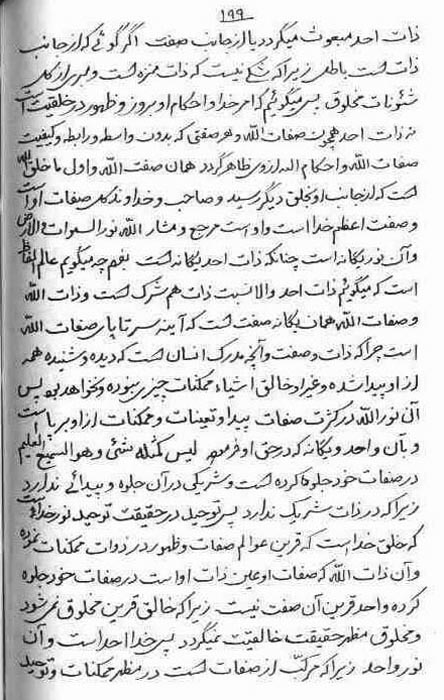 ۱۹۹
ذات احد مبعوث میگردد یا از جانب صفت اگر گوئے که از جانب
ذات است باطل زیرا که شکے نیست که ذات منزه است و مبرا از کل
شئونات مخلوق پس میگوئیم که امر خدا و احکام او بروز و ظهور در خلقیت است
نه ذات احد همچون صفات الله و هر صفتی که بدون واسطه و رابطه و کیفیت
صفات الله و احکام اله از وی ظاهر گردد همان صفت الله و اول ما خلق الله
است که از جانب او بخلق دیگر رسید و صاحب و خداوند کل صفات او است
و صفت اعظم خدا است و او است مرجع و مشار الله نور السموات و الارض
و آن نور یگانه است چنانکه ذات احد یگانه است نفهم چه میگویم عالم الفاظ
است که میگوئیم ذات احد والا نسبت ذات هم شرک است و ذات الله
و صفات الله همان یگانه صفت است که آینه سر تا پای صفات الله
است چرا که ذات و صفت و آنچه مدرک انسان است که دیده و شنیده همه
از او پیدا شده و غیر او خالق اشیاء ممکنات چیزی نبوده و نخواهد بود پس
آن نور الله در کثرت صفات پیدا و تعینات و ممکنات از او برپا است
و بآن واحد و یگانه که در حق او فرمود لیس کمثله شئ و هو السمیع العلیم
در صفات خود جلوه کرده است و شریکی در آن جلوه و پیدائے ندارد
زیرا که در ذات شریک ندارد پس توحید در حقیقت توحید نور خدا است
که خلق خدا است که قرین عوالم صفات و ظهور در ذوات ممکنات نموده
و آن ذات الله که صفات او عین ذات او است در صفات خود جلوه
کرده واحد قرین آن صفت نیست زیرا که خالق قرین مخلوق نمی شود
و مخلوق مظهر حقیقت خالقیت نمیگردد پس خدا احد است و آن
نور واحد زیرا که مرکب از صفات است در مظهر ممکنات و توحید